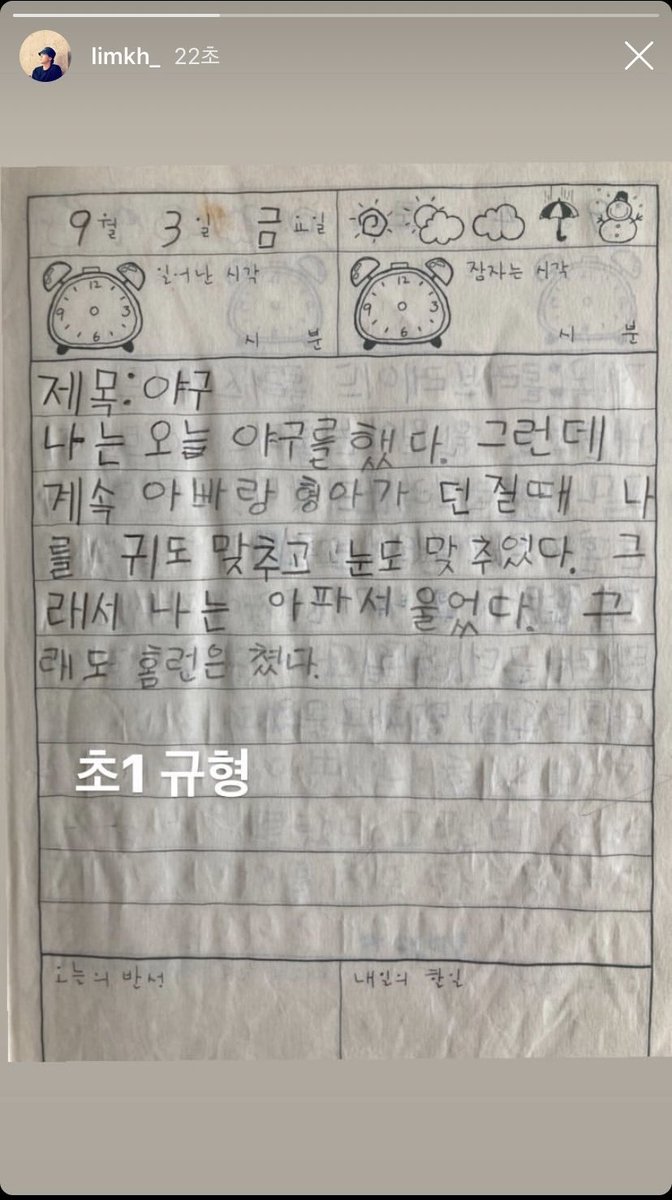 limkh_ 22초
9월 3일 금요일
일어난 시각
12
9 3
6
시 분
잠자는 시각
12
9 3
6
시 분
제목:야구
나는 오늘 야구를 했다. 그런데
계속 아빠랑 형아가 던질때 나
를 귀도 맞추고 눈도 맞추었다. 그
래서 나는 아파서 울었다. 그
래도 홈런은 쳤다.
초1 규형
오늘의 반성
내일의 할일